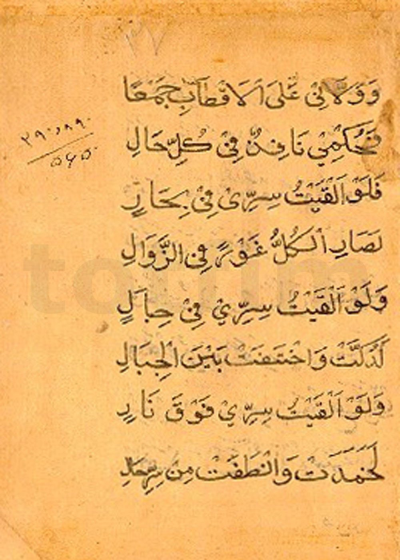 وَوَلَّانِيْ عَلَى الْاَقْطَابِ جَمْعًا
فَحُكْمِيْ نَافِذٌ فِيْ كُلِّ حَالِ
فَلَوْ اَلْقَيْتُ سِرِّيْ فِيْ بِحَارٍ
لَصَارَ الْكُلُّ غَوْرً فِي الزَّوَالِ
وَلَوْ اَلْقَيْتُ سِرِّيْ فِيْ جِبَالٍ
لَدُكَّتْ وَاخْتَفَتْ بَيْنَ الْجِبَالِ
وَلَوْ اَلْقَيْتُ سِرِّيْ فَوْقَ نَارٍ
لَخَمَدَتْ وَانْطَفَتْ مِنْ سِرِّحَالِ